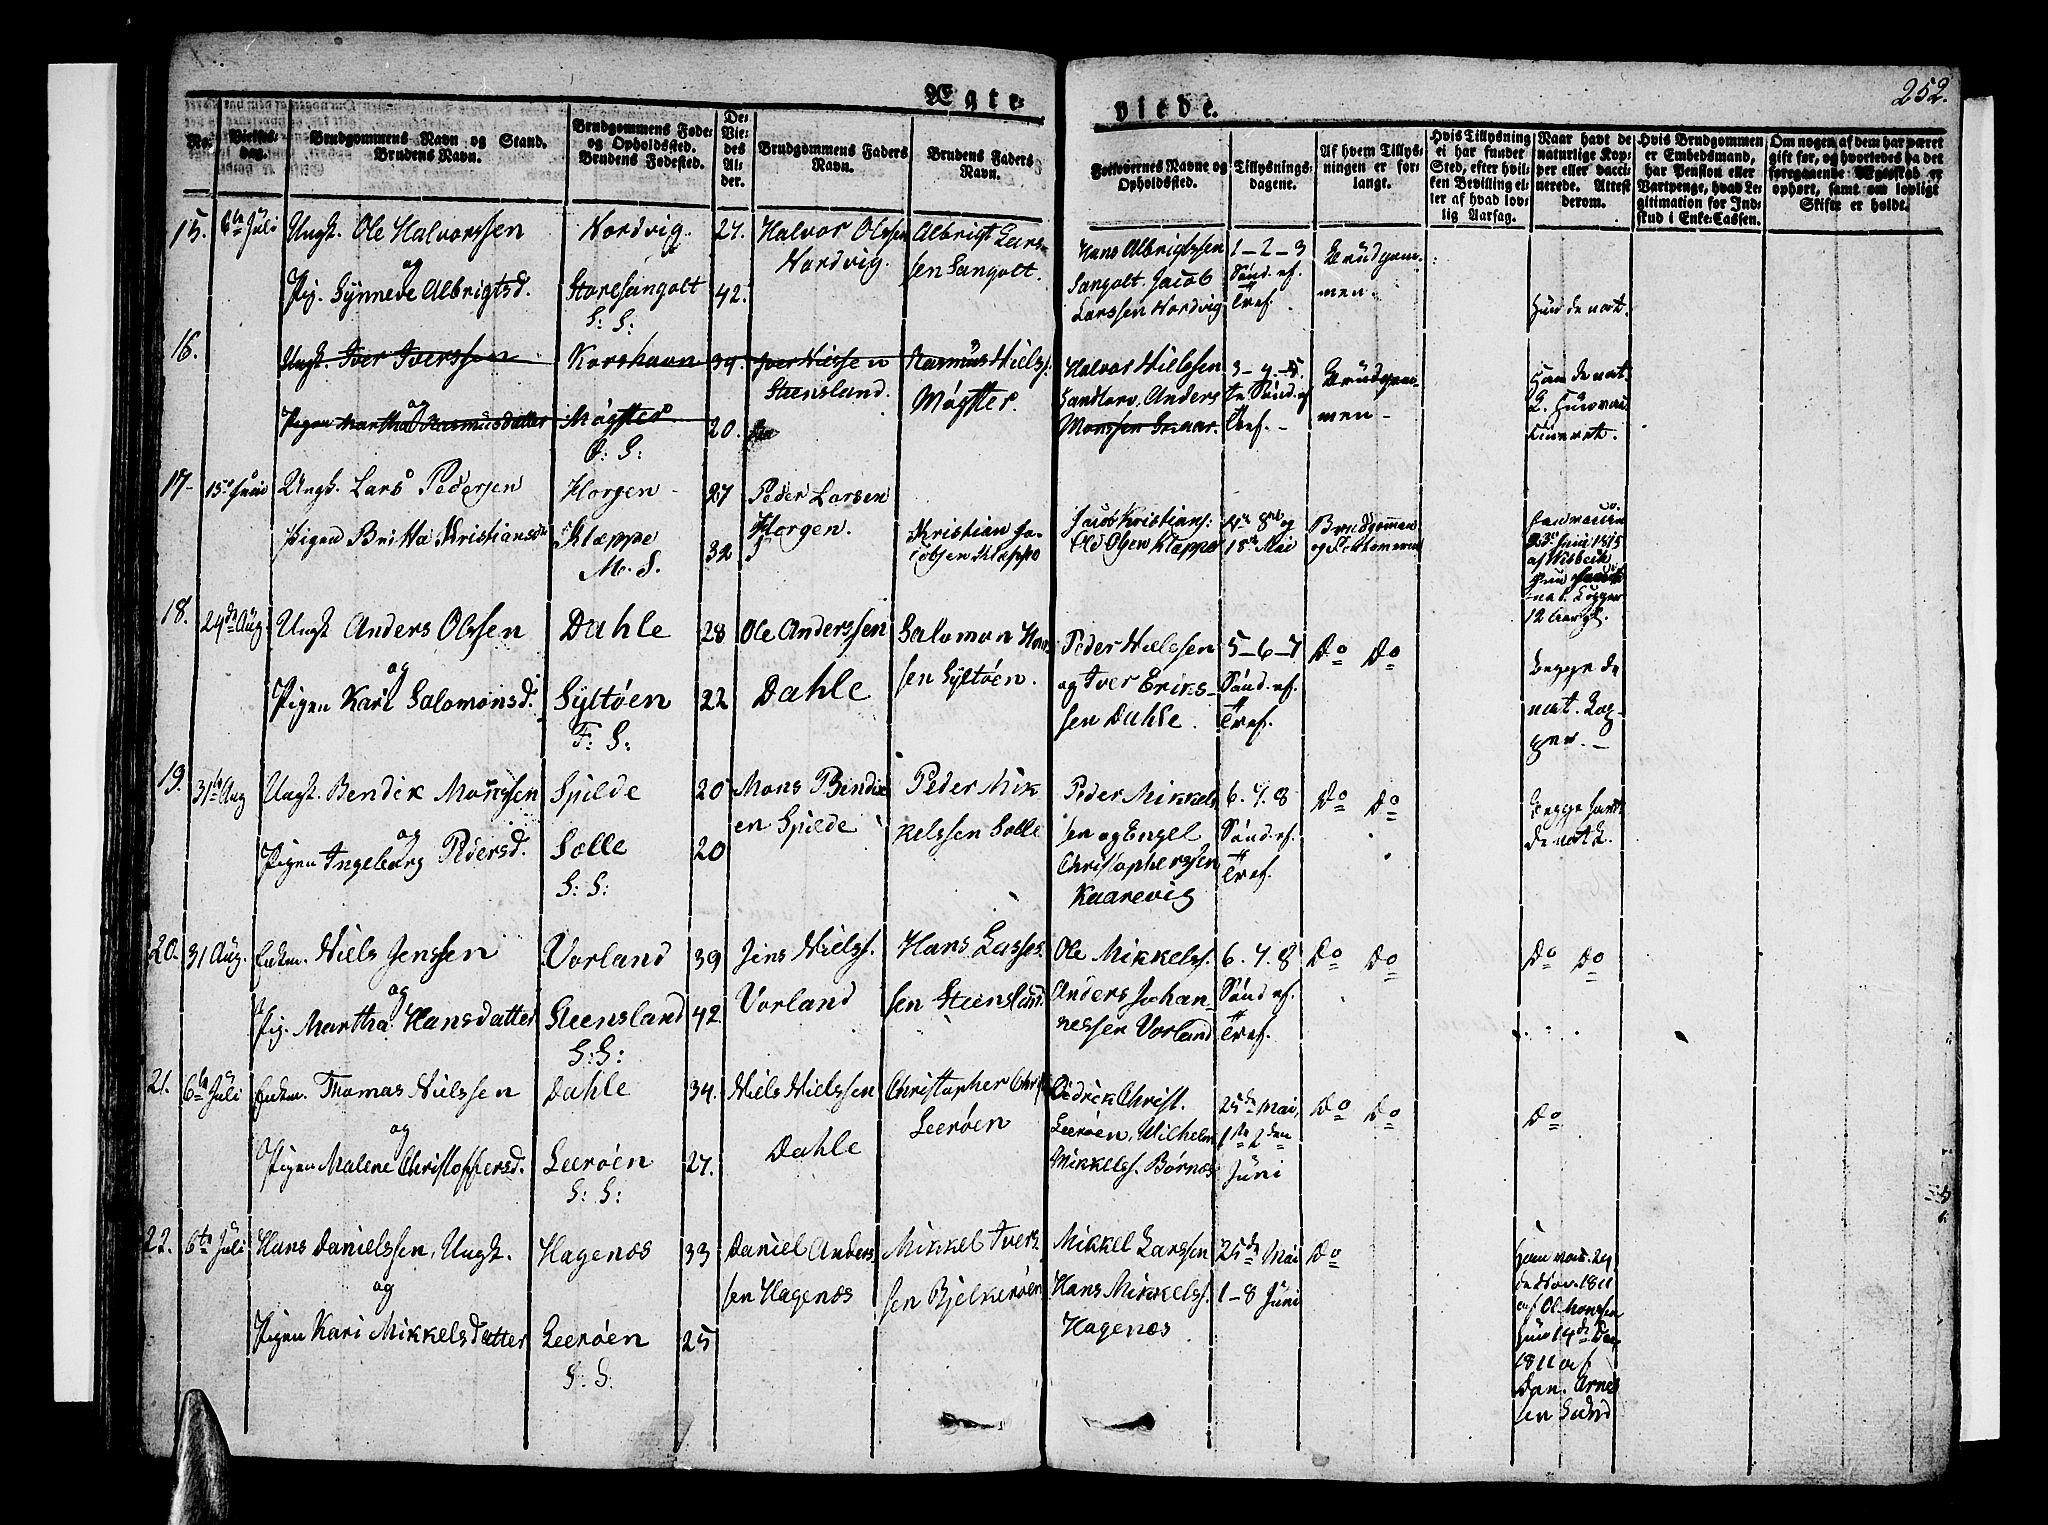 Ægte-
viede.
252.
No.
Vielses-
dag.
Brudgommens Navn og Stand.
Brudens Navn.
Brudgommens Føde-
og Opholdssted.
Brudens Fødested.
De
Vie-
des
Al-
der.
Brudgommens Faders
Navn.
Brudens Faders
Navn.
Forlovernes Navne og
Opholdssted.
Tillysnings-
dagene.
Af hvem Tillys-
ningen er for-
langt.
Hvis Tillysning
ei har fundet
Sted, efter hvil-
ken Bevilling el-
ler af hvad lov-
lig Aarsag.
Naar havt de
naturlige Kop-
per eller vacci-
nerede. Attest
derom.
Hvis Brudgommen
er Embedsmand,
har Pension eller
Vartpenge, hvad Le-
gitimation for Ind-
skud i Enke-Cassen.
Om nogen af dem har været
gift før, og hvorledes da det
foregaaende Ægteskab er
ophørt, samt om lovligt
Skifte er holdt.
15.
6te Juli
Ungk. Ole Halvorssen
og
Pig. Synneve Albrigtsd.
Nordvig
Storesangolt
S: S:
27.
42.
Halvor Olssen
Nordvig.
Albrigt Lars-
sen Sangolt.
Hans Albrigtssen
Sangolt. Jacob
Larssen Nordvig
1-2-3
Sønd. ef.
Tref.
Brudgom-
men.
Hun de nat.
16.
Ungk. Iver Iverssen
og
Pigen Martha Rasmusdatter
Korshavn
Møgster
Ø: S:
34.
20.
Iver Nielssen
Steensland.
Rasmus Nielss.
Møgster.
Halvor Nielssen
Sandtorv, Anders
Monssen
3-4-5
te Sønd. ef
Tref.
Brudgom-
men
Han de nat.
K. Hun vac-
cineret.
17.
15de Juni
Ungk. Lars Pedersen
Pigen Britta Kristiansdr
Horgen
Klæppe
M. S.
27
32
Peder Larsen
Horgen.
Kristian Ja-
cobsen Klæppe
Jacob Kristians:
Ole Olsen Klæppe
4de 8de og
15de Mai
Brudgommen
og
Han vaccin.
23de Juni 1815
af
Hun
nat. Kopper
12 Aar gl.
18.
24de Aug.
Ungk Anders Olssen
og
Pigen Kari Salomonsd.
Dahle
Syltøen
F: S:
28
22
Ole Anderssen
Dahle
Salomon Hans-
sen Syltøen.
Peder Nielssen
og Iver Eriks-
sen Dahle.
5-6-7
Sønd. ef.
Tref.
Do Do
Begge de
nat. Kop-
per.
19.
31te Aug
Ungk. Bendix Monssen
og
Pigen Ingeborg Pedersd.
Spilde
Solle
S: S:
20
20
Mons Bendix
en Spilde
Peder Mik
kelssen Solle
Peder Mikkels
sen og Engel
Christopherssen
Kaarevig
6. 7. 8
Sønd. ef.
Tref.
Do Do
Begge havt
de nat K.
20.
31 Aug.
Enkm. Niels Jenssen
og
Pig. Martha Hansdatter
Vorland
Steensland
S: S:
39
42
Jens Nielss.
Vorland
Hans Lasses-
sen Steensland
Ole Mikkelss.
Anders Johan-
nessen Vorland
6. 7. 8
Sønd. ef.
Tref.
Do Do
Do Do
21.
6te Juli
Enkm. Thomas Nielssen
og
Pigen Malene Christoffersd.
Dahle
Leerøen
S: S:
34.
27.
Niels Nielssen
Dahle
Christopher Chr
Leerøen
Didrik Christ.
Leerøen, Wilhelm
Mikkelss. Børnæs
25de Mai,
1te 2den
Juni
Do Do
Do
22.
6te Juli
Hans Danielssen, Ungk.
og
Pigen Kari Mikkelsdatter
Hagenæs
Leerøen
S: S.
33
25
Daniel Anders-
sen Hagenæs
Mikkel Ivers-
sen Bjelkerøen
Mikkel Larssen
Hans Mikkelss.
Hagenæs
25de Mai
1-8 Juni
Do
Han vac. 24
de Nov. 1811
af Ol. Monssen
Hun 14de Dec.
1811 af
Dan. Arnes
sen Sund